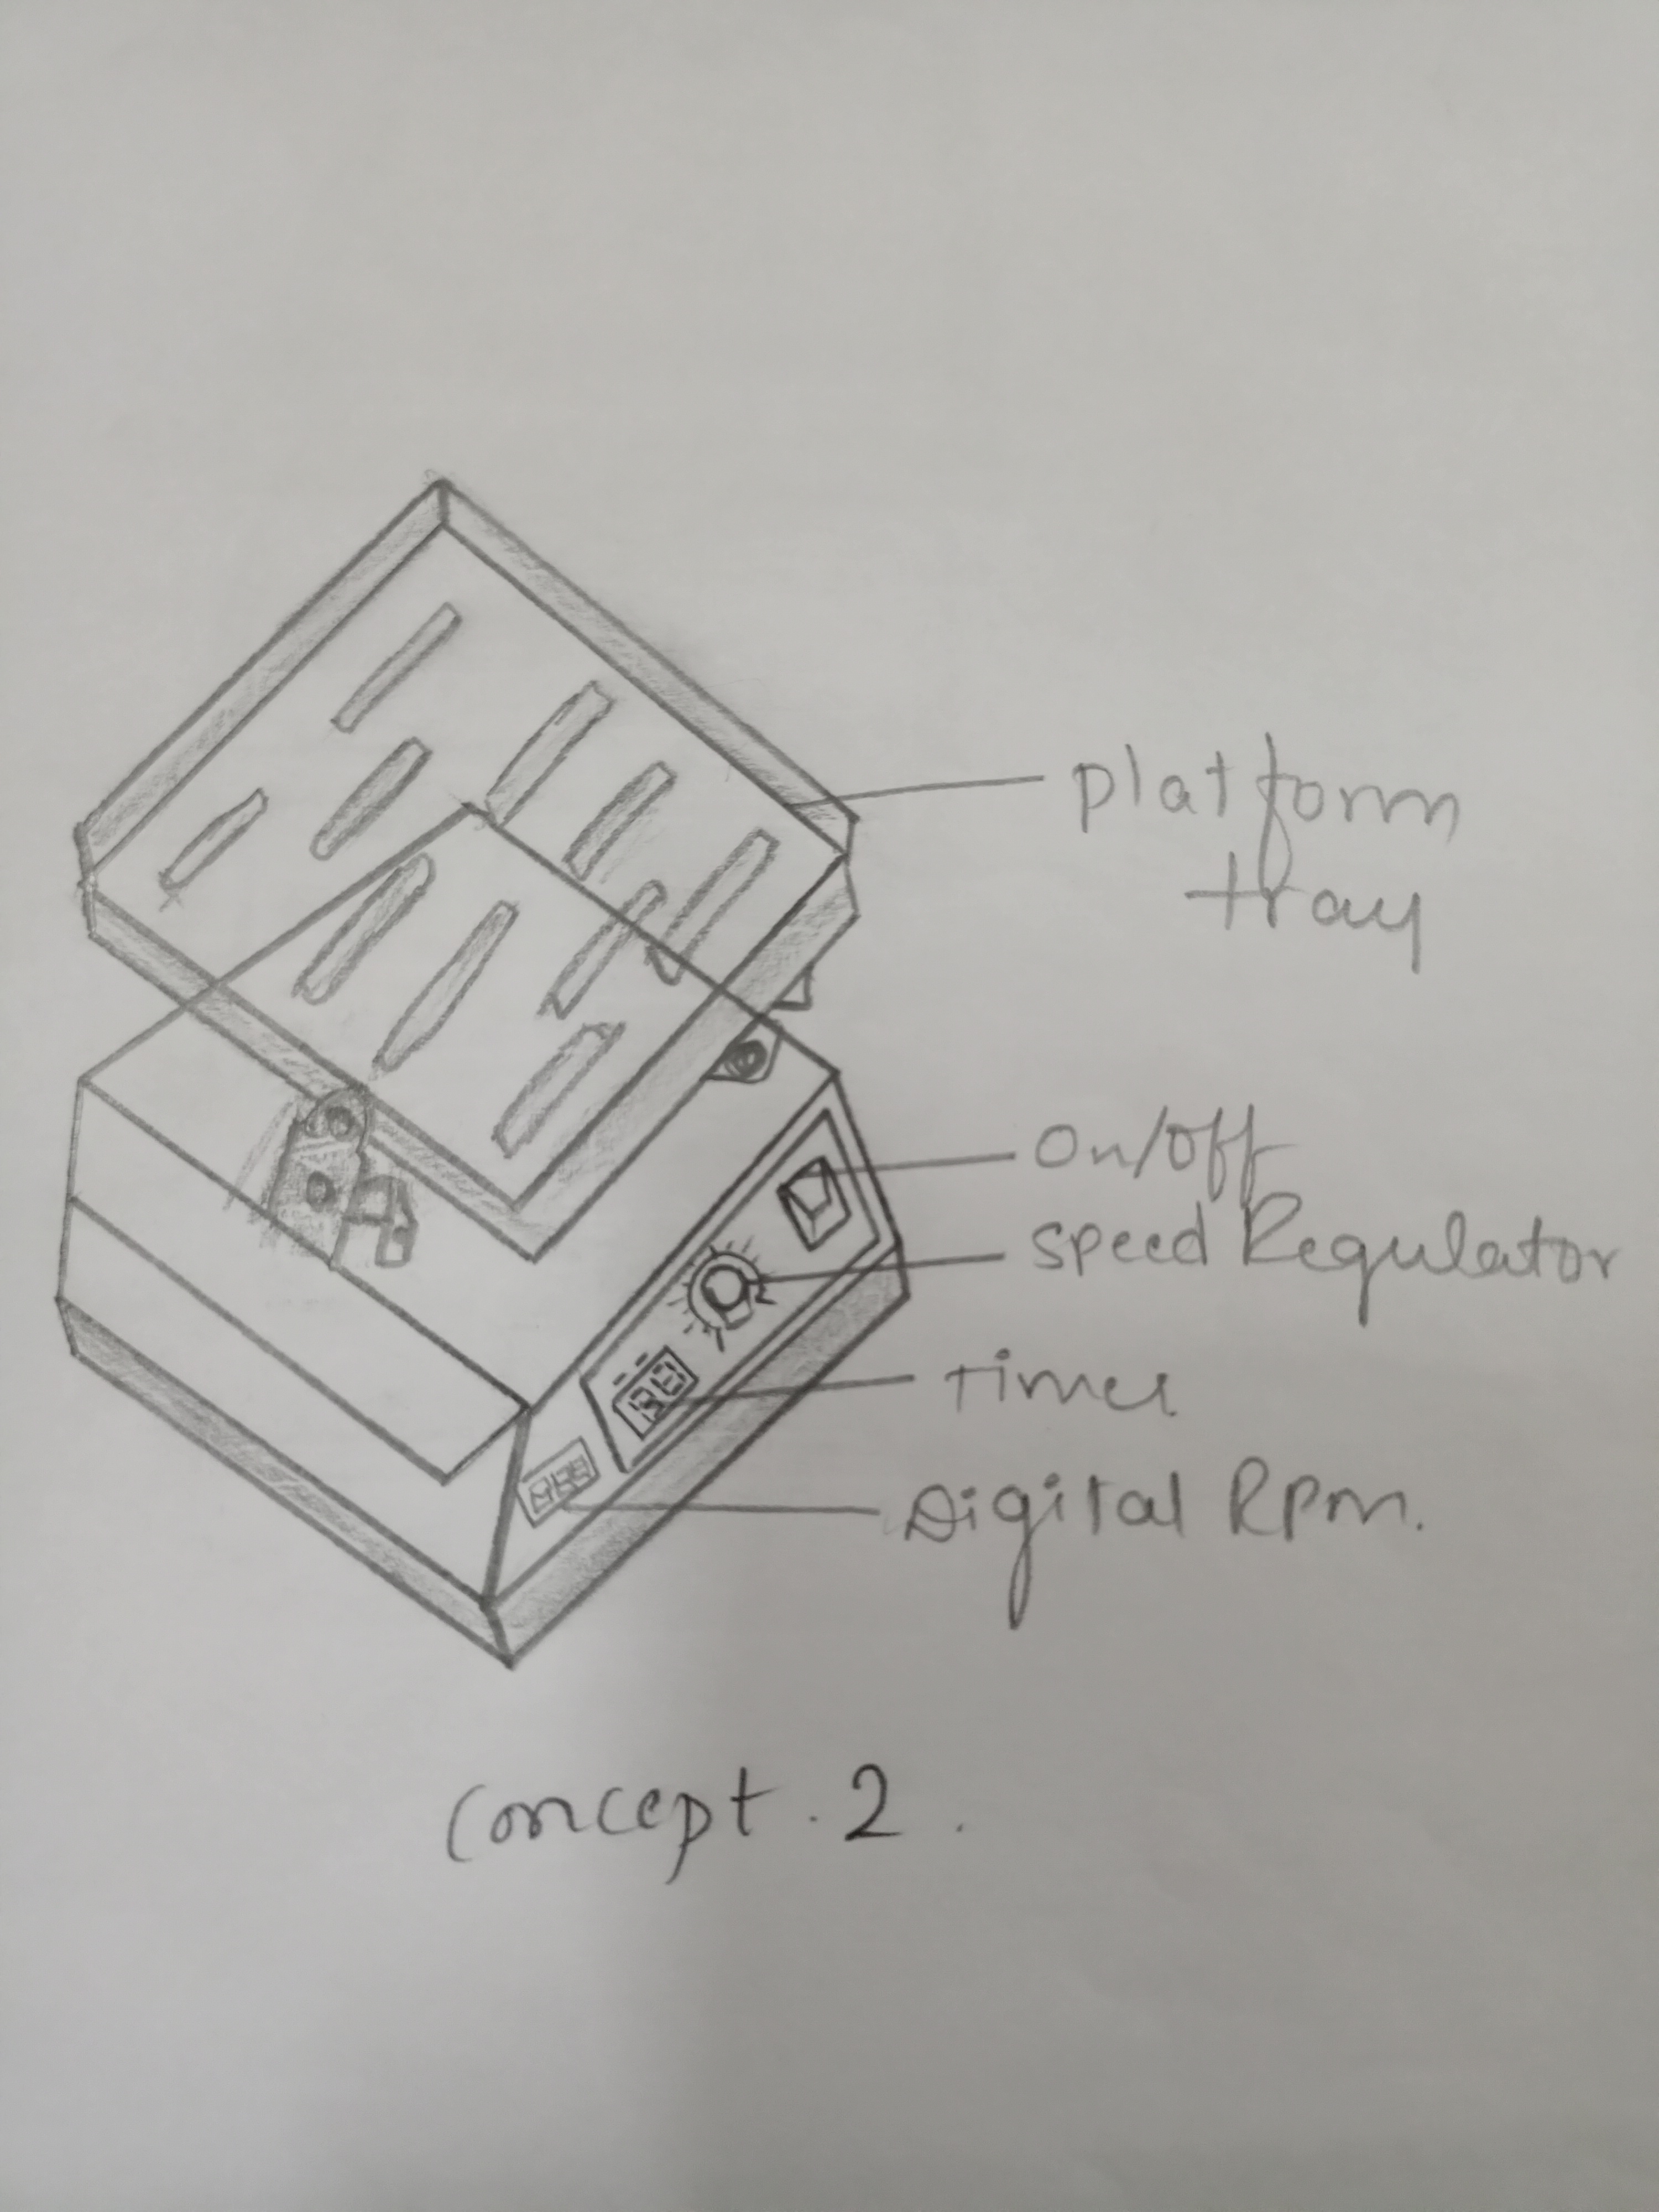 platform
tray
On/Off
Speed Regulator
Timer
Digital Rpm.
Concept . 2 .